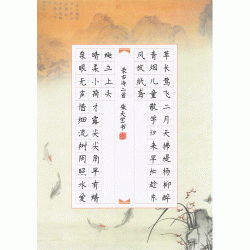 草长莺飞二月天拂堤杨柳醉
春烟儿童散学归来早忙趁东
风放纸鸢
录古诗二首
泉眼无声惜细流树阴照水爱
晴柔小荷才露尖尖角早有蜻
蜓立上头